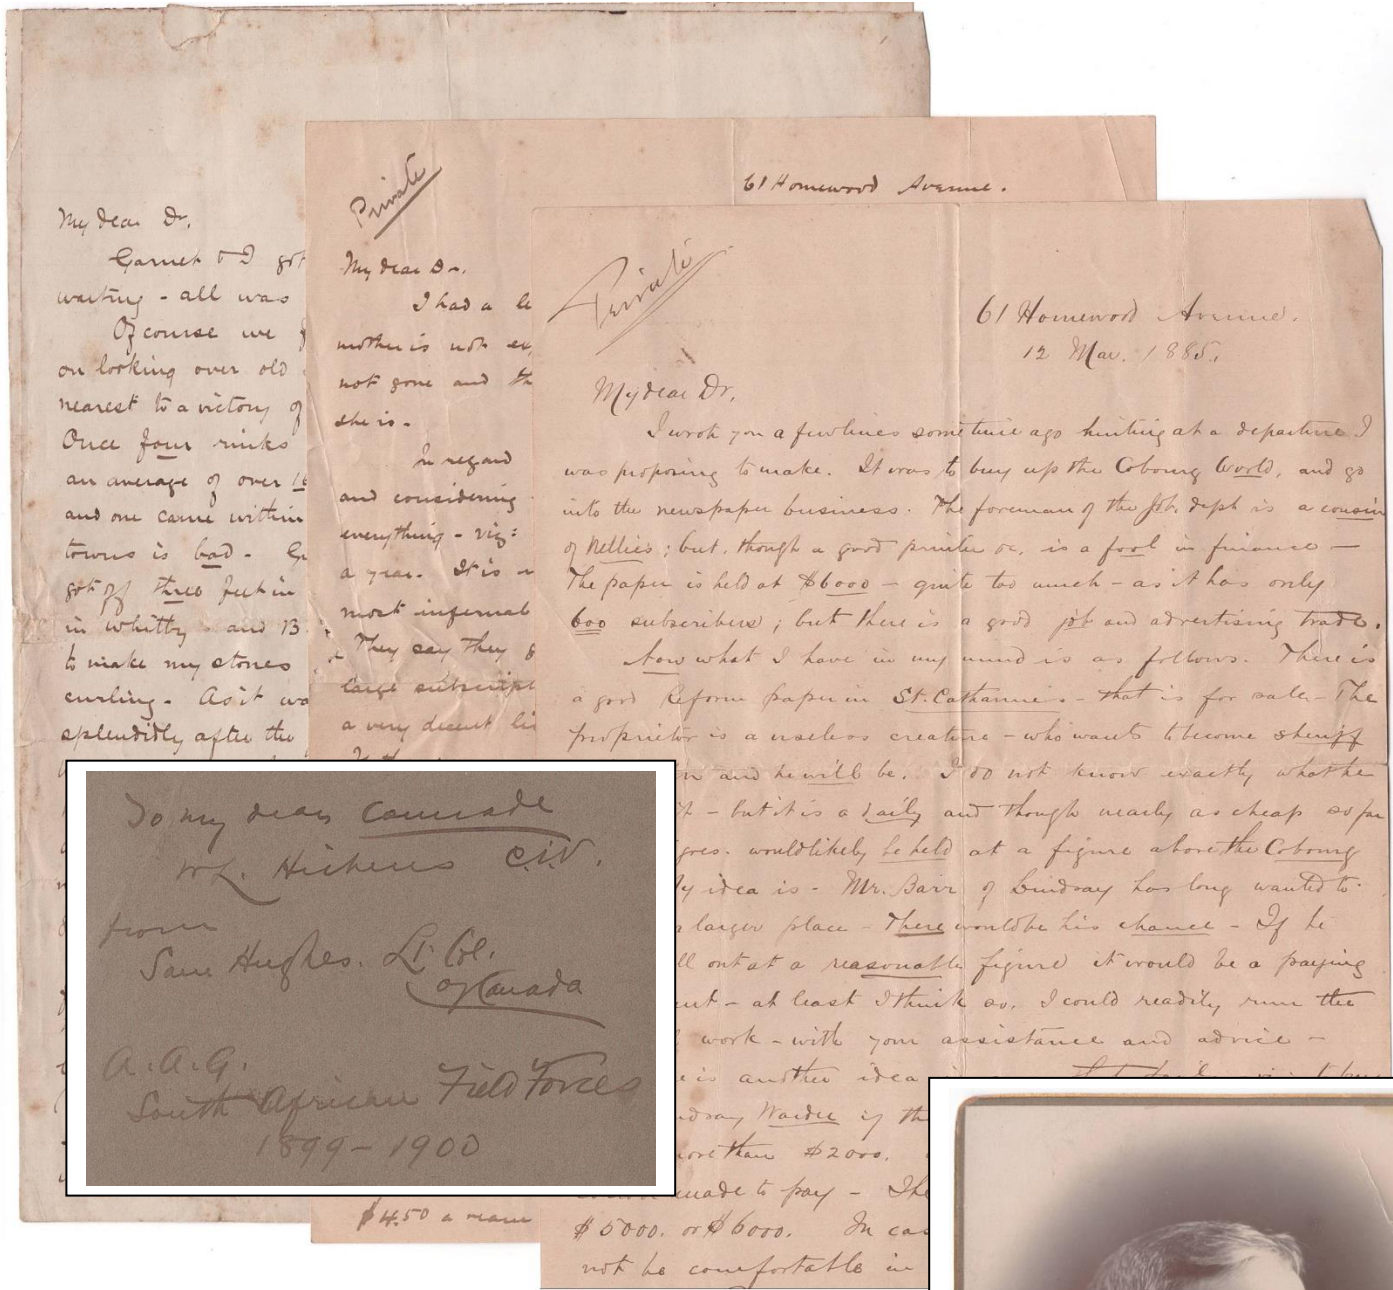 My dear Dr,
Garnet & I got
waiting - all was
Of course we
on looking over old
nearest to a victory of
Once four rinks
an average of over
and one came within
towns is bad -
got off three feet in
in Whitby and B
to make my stones
curling. As it wa
splendidly after the
Private
61 Homewood Avenue.
My dear Dr.
I had a le
mother is not ex
not gone and th
she is -
In regard
and considering
everything - viz:
a year. It is
most infernal
They say they
large subscript
a very decent li
$4.50 a ream
Private
61 Homewood Avenue.
12 Mar. 1885.
My dear Dr,
I wrote you a few lines some time ago hinting at a departure I
was proposing to make. It was to buy up the Cobourg World, and go
into the newspaper business. The foreman of the Job. dept is a cousin
of Nellies; but, though a good printer &c, is a fool in finance -
The paper is held at $6000 - quite too much - as it has only
600 subscribers; but there is a good job and advertising trade.
Now what I have in my mind is as follows. There is
a good Reform paper in St. Catharines - that is for sale - The
proprietor is a useless creature - who wants to become sheriff
and he will be. I do not know exactly what he
- but it is a daily and though nearly as cheap so far
goes. would likely be held at a figure above the Cobourg
My idea is - Mr. Barr of Lindsay has long wanted to
a larger place - There would be his chance - If he
ll out at a reasonable figure it would be a paying
ent - at least I think so. I could readily run the
work - with your assistance and advice -
is another idea
ndsay Warder if th
more than $2000.
made to pay - The
$5000. or $6000. In cas
not be comfortable in
To my dear Comrade
W.L. Hichens C.I.V.
from
Sam Hughes. Lt. Col.
of Canada
A.A.G.
South African Field Forces
1899-1900